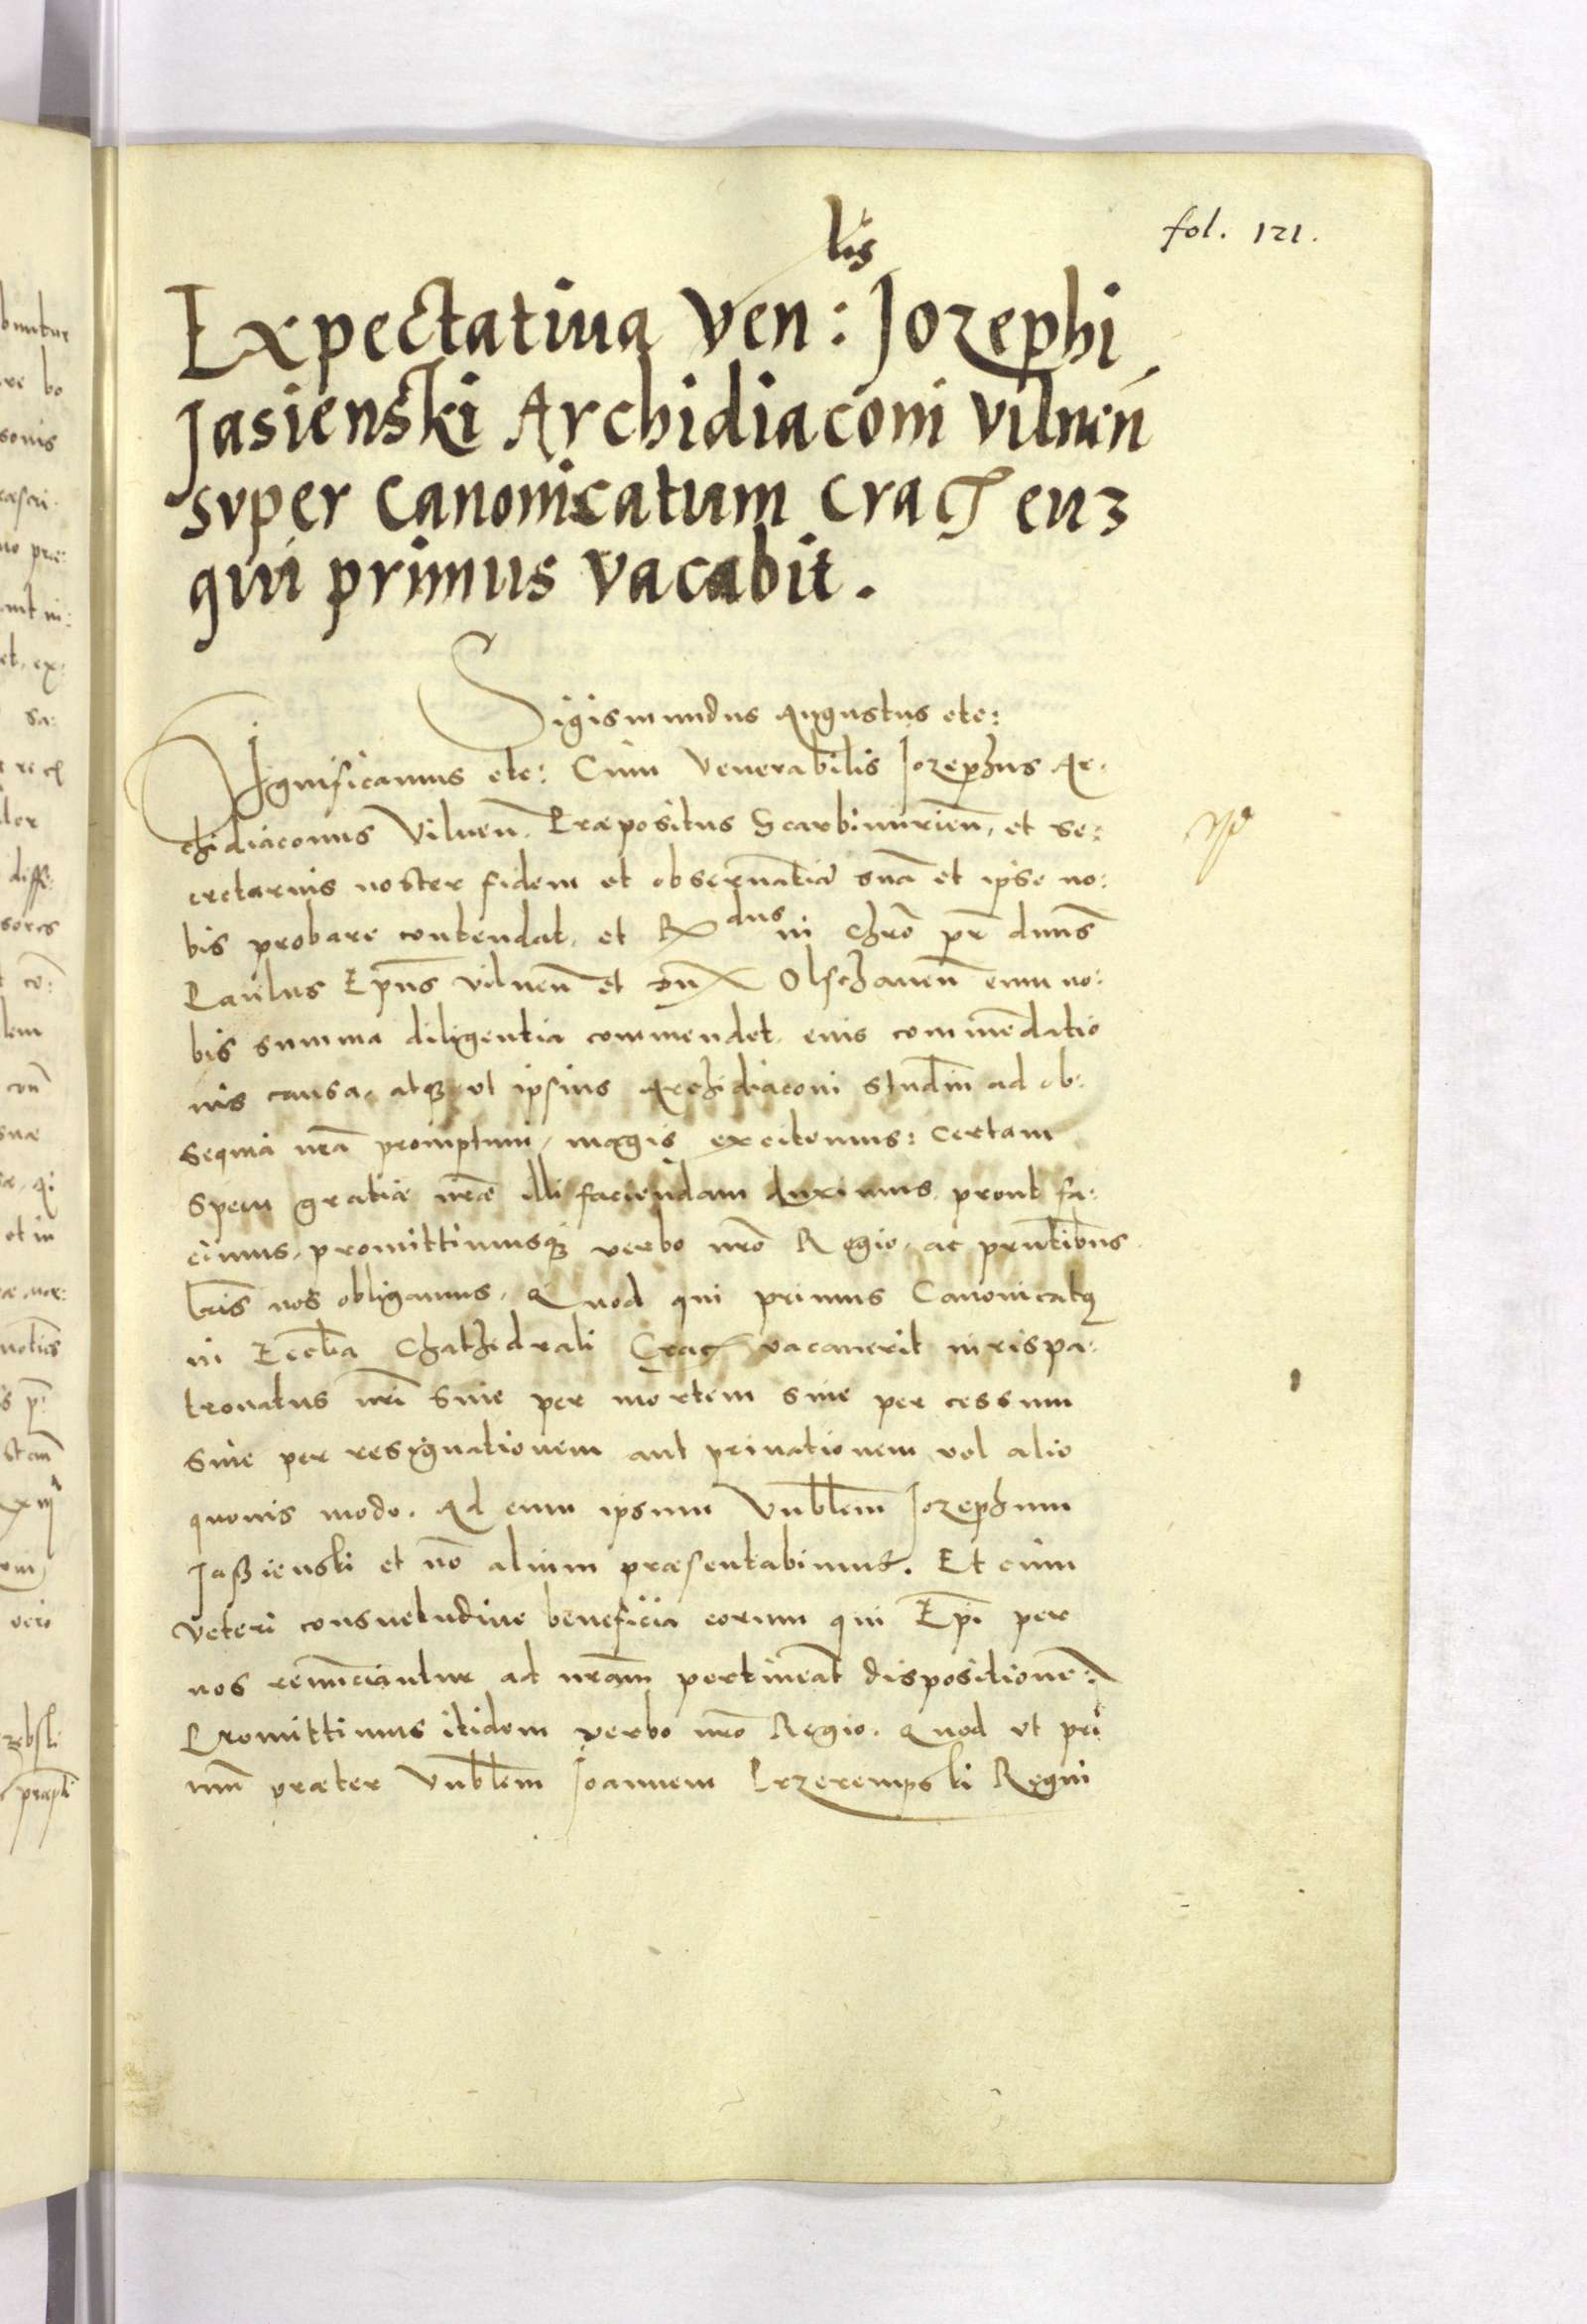 fol. 121.
Expectatiua Ven:lis Jozephi
Jasienski Archidiaconi Vilnen̄
super Canonicatum Crac̄ enz
qui primus vacabit.
Sigismundus Augustus etc:
Significamus etc: Cum Venerabilis Jozephus Ar-
chidiaconus Vilnen̄. Præpositus Scarbimirien̄, et Se:
cretarius noster fidem et obseruatiā suā et ipse no:
bis probare contendat. et Rdus in Chrō pr̄ dnns̄
Paulus Epūs Vilnen̄ et Olschanen̄ eum no:
bis summa diligentia commendet. euis commēdatio
nis causa, atq3 ut ipsius Archidiaconi studiū ad ob:
sequia nr̄a promptum, magis excitemus: certam
spem gratiæ nr̄æ illi faciendam duximus. prout fa:
cimus, promittimusq3 verbo nr̄o Regio, ac prn̄tibus
lr̄is nos obligamus. Quod qui primus Canonicatq
in Eccl̄ia Chathedrali Crac̄ vacauerit iurispa-
tronatus nr̄i Siue per mortem siue per cessum
siue per resignationem aut priuationem vel alio
quouis modo. Ad eum ipsum Vnbl̄em Jozephum
Jaszienski et nō alium præsentabimus. Et cum
Veteri consuetudine beneficia eorum qui Epī per
nos renunciantur ad nr̄am pertineāt dispositionē:
Promittimus itidem verbo nr̄o Regio. Quod ut pri
mū præter Vnbl̄em Joannem Przerempski Regni